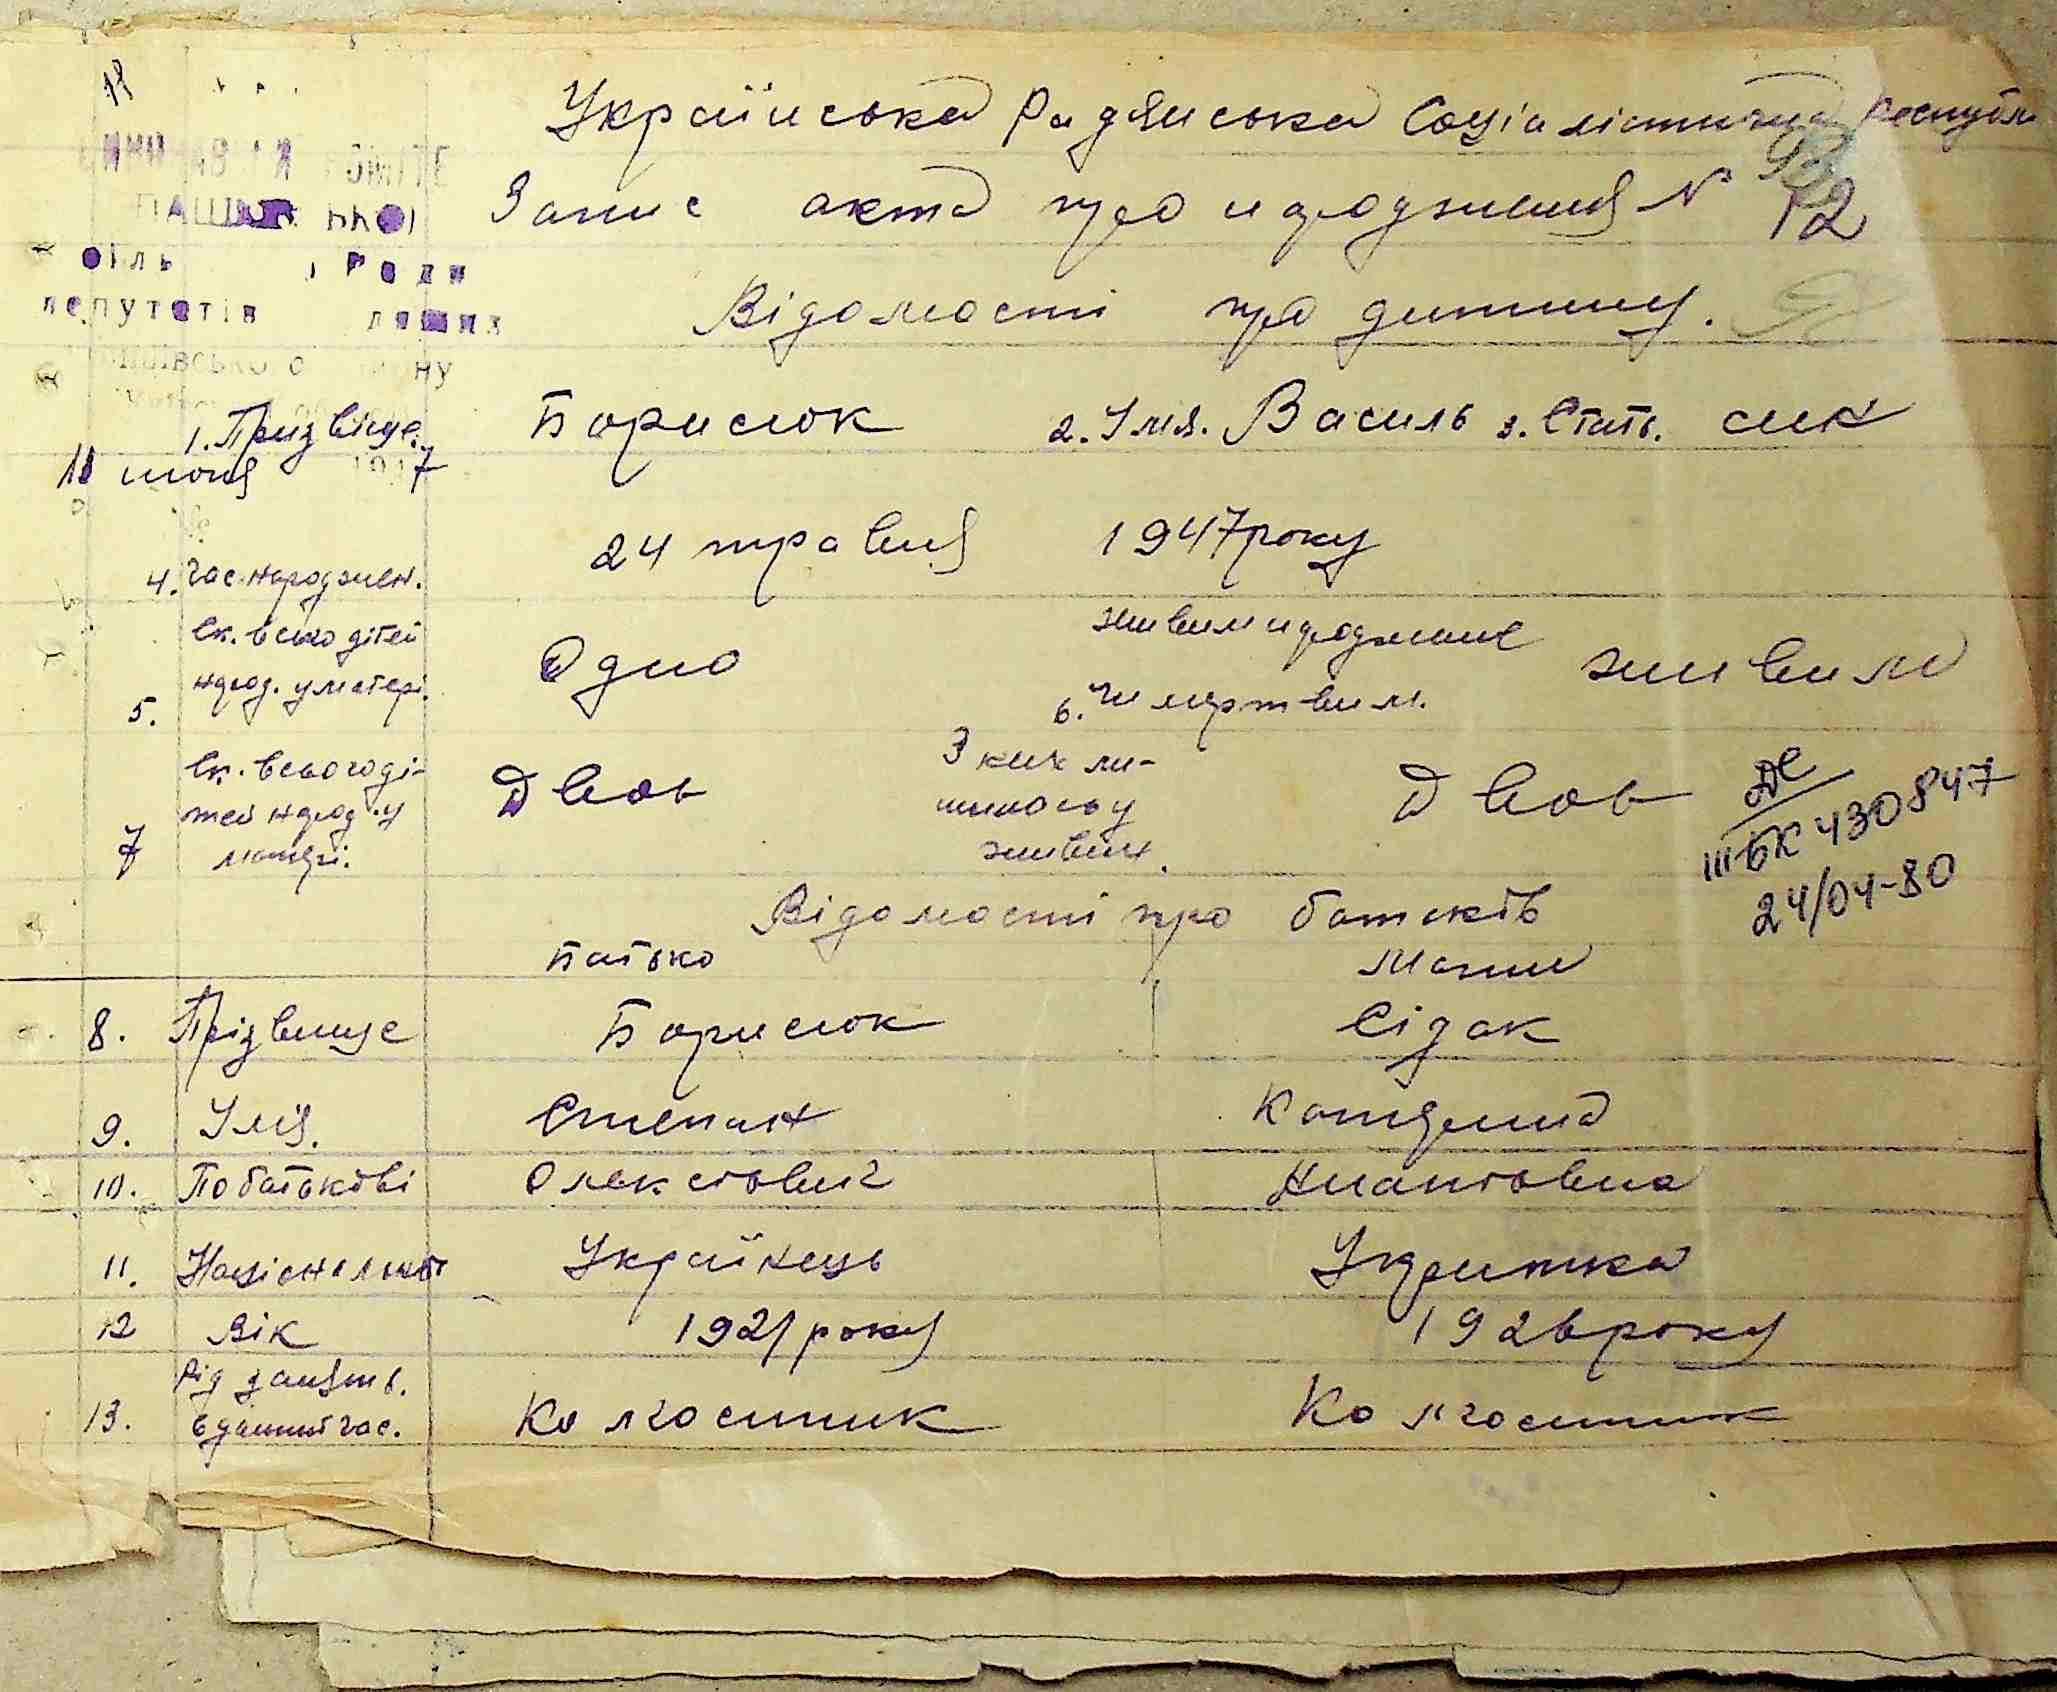 Українська Радянська Соціалістична Республі
Запис акта про народження № 12
Відомості про дитину.
депутатів
1. Призвіще. Борисюк 2. Імя. Василь 3. Стать. син
11 июня 1947
4. Час народжен. 24 травня 1947 року
5. Ск. всього дітей народ. у матері. Одно 6. живим народжене чи мертвим. живим
7 Ск. всього дітей народ. у матері. Двоє З них лишилось у живих. Двоє
ІІІ БК 430847
24/04-80
Відомості про батьків
Батько Мати
8. Прізвище Борисюк Сідак
9. Імя. Степан Катерина
10. Побатькові Олексіович
11. Національність Українець Українка
12 Вік 1921 року 1926 року
13. Рід занять в даний час. Колгоспник Колгоспник